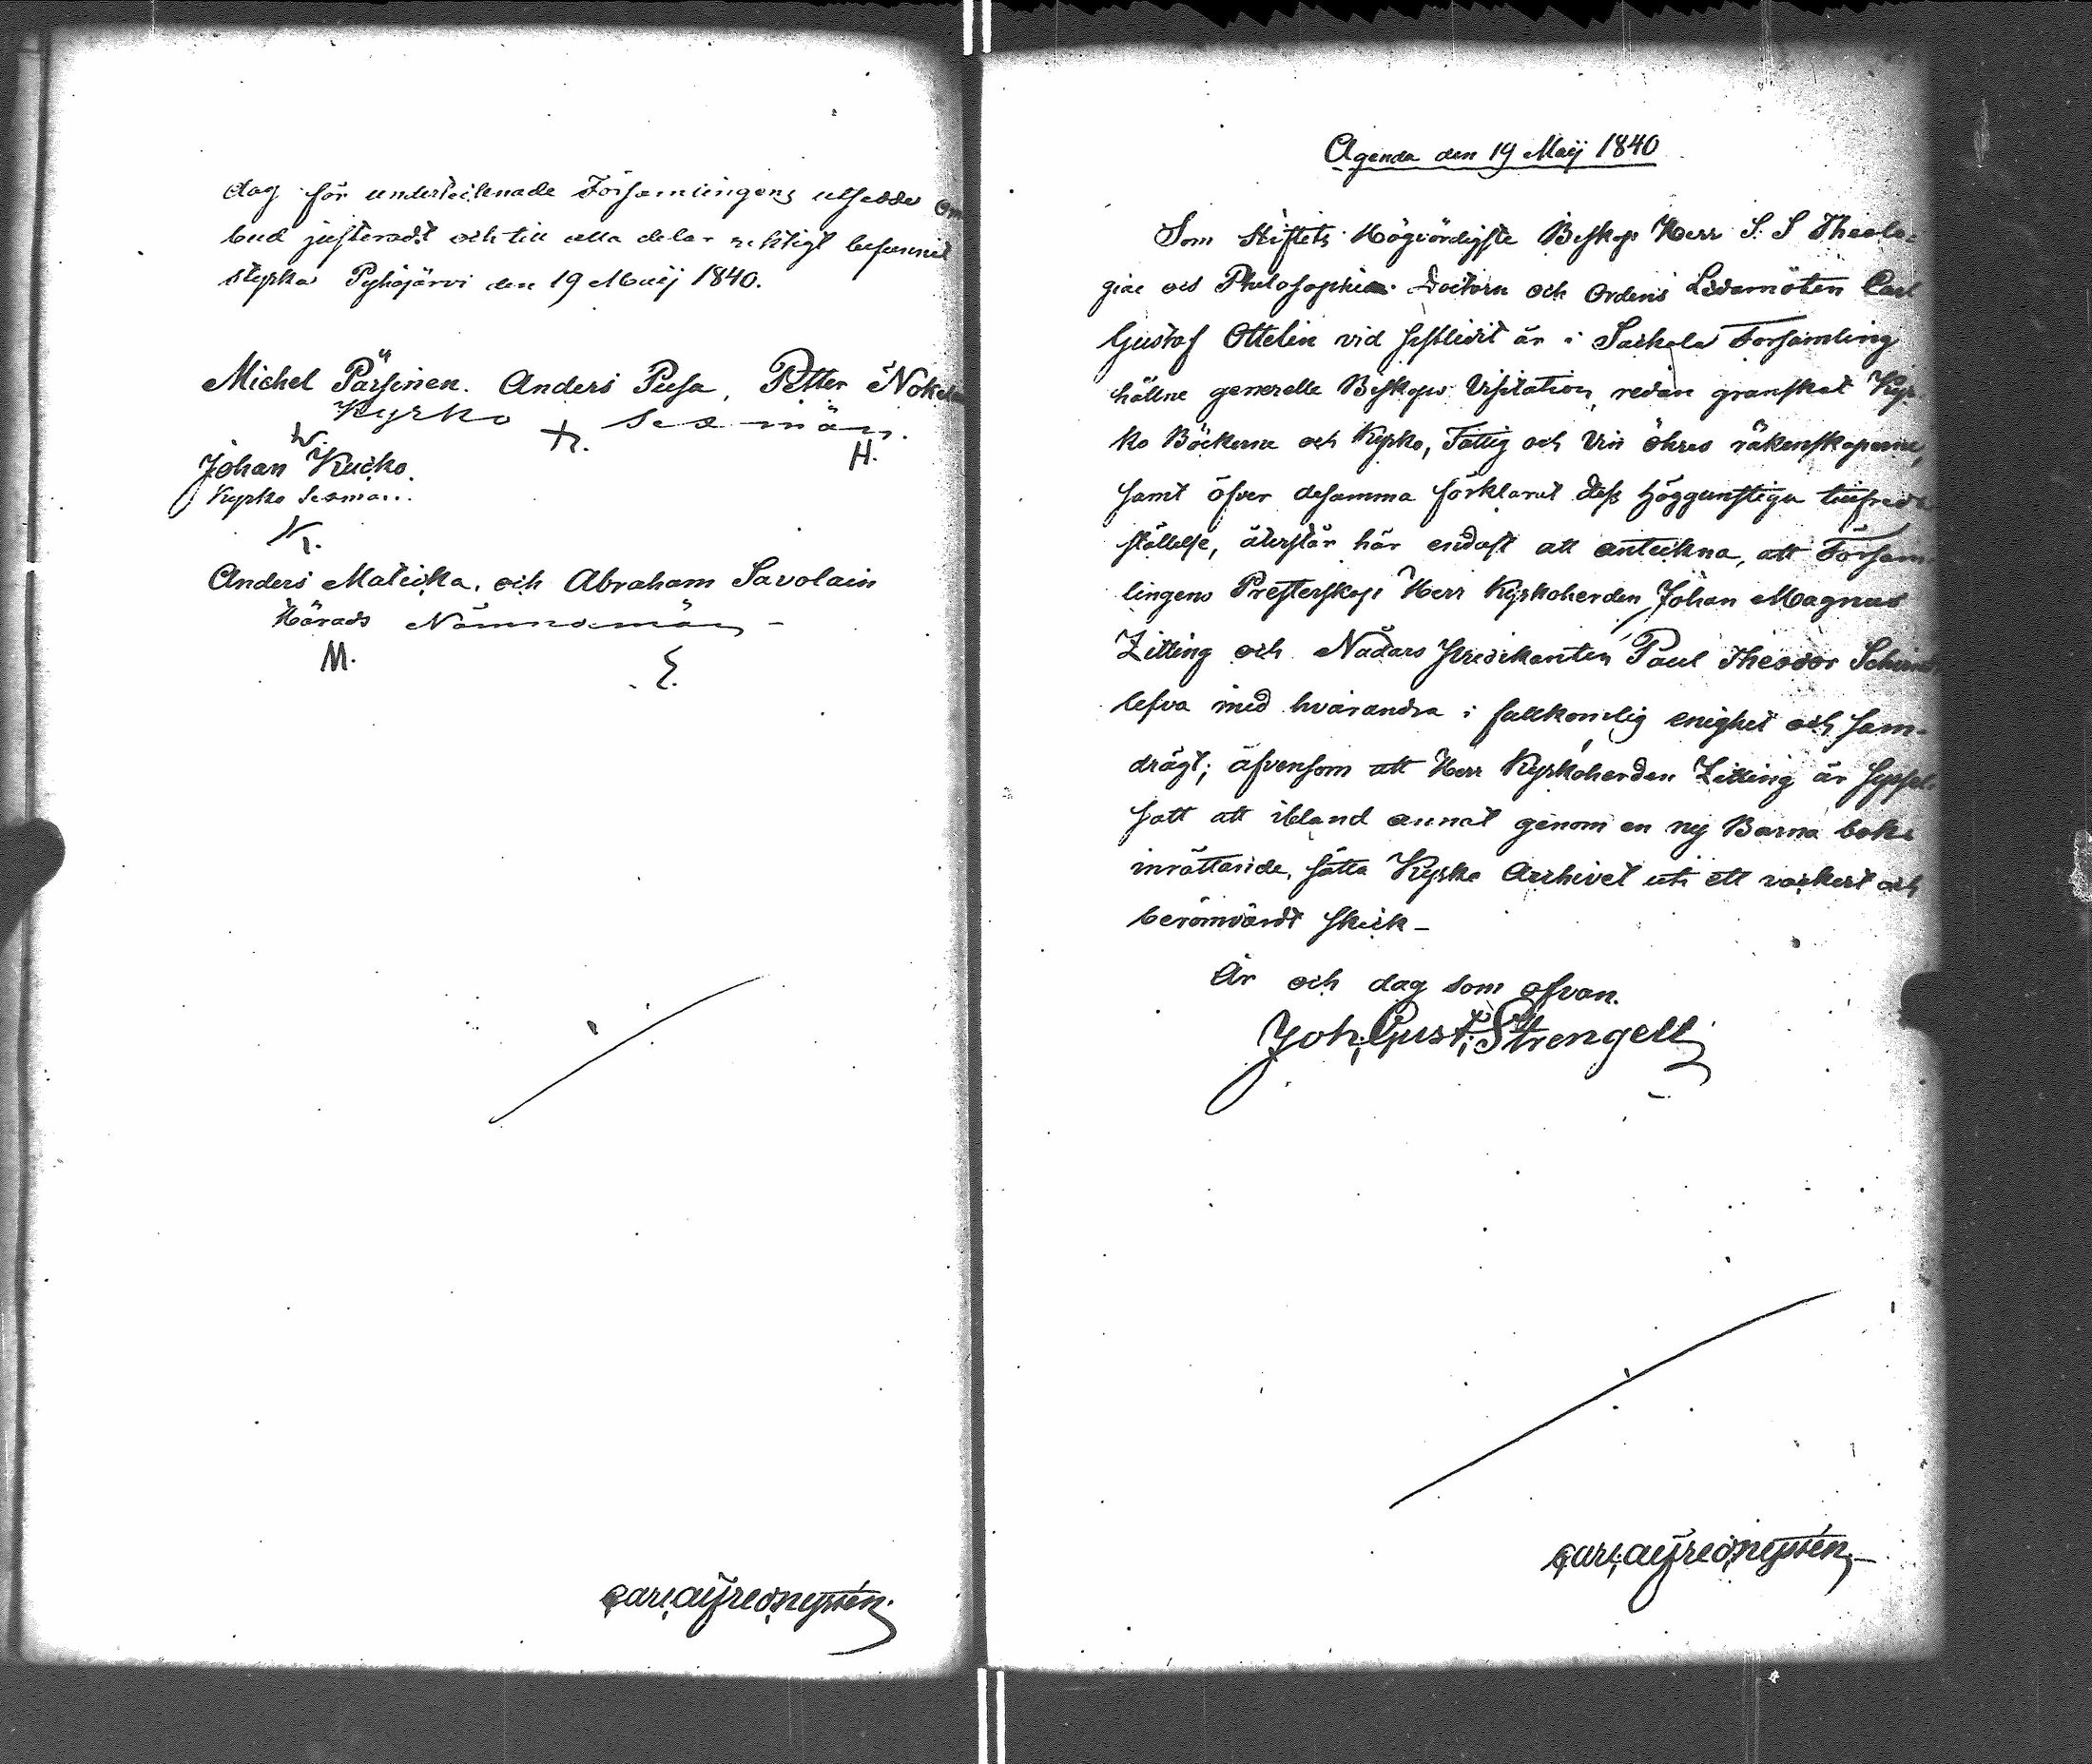 dag för undertecknade Församlingens utsedde om
bud justeradt och till alla delar riktigt befunnit
styrka Pyhäjärvi den 19 Maij 1840.
Michel Pärsinen. Anders Pusa, Petter Nokela
Kyrko Sexmän.
H.
Johan Kucko.
Kyrko Sexman.
Anders Matikka, och Abraham Savolain
Härads Nämndemän
M.
Carl Alfred Nyssén
Agenda den 19 Maij 1840
Som Stiftets Högvördigste Biskop Herr S. S Theolo=
giae och Philosophiae Doctorn och Ordens Ledamöten Carl
Gustaf Ottelin vid sistledit år i Sackola Församling
hållne generelle Biskops Visitation, redan granskat Kyr
ko Böckerne och Kyrko, Fattig och Vin öhres räkenskaperne,
samt öfver desamma förklarat dess höggunstiga tillfreds
ställelse, återstår här endast att anteckna, att Försam
lingens Presterskap Herr Kyrkoherden Johan Magnus
Zitting och Nådårs Predikanten Paul Theodor
lefva med hvarandra i fullkomlig enighet och sam-
drägt; äfvensom att Herr Kyrkoherden Zitting är syssel
satt att ibland annat genom en ny Barna boks
inrättande, sätta Kyrko Archivet uti ett vackert och
berömvärdt skick_
År och dag som ofvan.
Joh. Gust. Strengell
Carl Alfred Nyssén